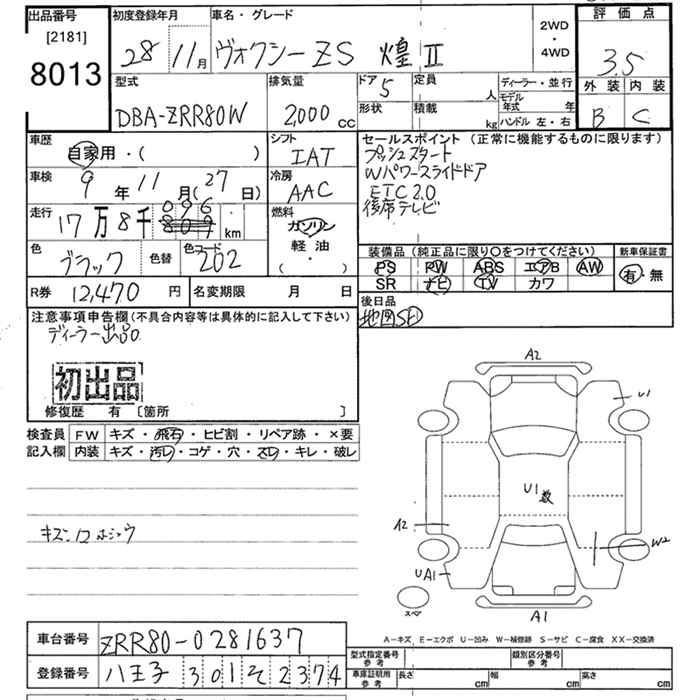 出品番号 初度登録年月 車名・グレード 評価点
[2181] 8013
28年 11月 ヴォクシー ZS 煌Ⅱ 2WD・4WD 3.5
外装 内装
B C
型式 排気量 ドア 5 定員 人 ディーラー・並行
DBA-ZRR80W 2,000cc 形状 積載 kg モデル年式 年
ハンドル 左・右
車歴 シフト セールスポイント (正常に機能するものに限ります)
自家用・( ) IAT プッシュスタート
車検 冷房 Wパワースライドドア
9年11月(27日) AAC ETC2.0
後席テレビ
走行 17万8千096km 燃料 ガソリン・軽油・( )
色 ブラック 色替 色コード 202
装備品 (純正品に限り〇をつけてください) 新車保証書
PS PW ABS エアB AW 有・無
SR ナビ TV カワ
R券 12,470円 名変期限 月 日 後日品
地図SD
注意事項申告欄(不具合内容等は具体的に記入して下さい)
ディーラー出品。
初出品
修復歴 有 [箇所 ]
検査員 FW キズ・飛石・ヒビ割・リペア跡・×要
記入欄 内装 キズ・汚レ・コゲ・穴・スレ・キレ・破レ
A2
U1
U1数
A2
W2
UA1
スペア
A1
A-キズ E-エクボ U-凹み W-補修跡 S-サビ C-腐食 XX-交換済
車台番号 ZRR80-0281637
登録番号 八王子 301 そ 2374
型式指定番号 参考 類別区分番号 参考
車庫証明用 参考 長さ cm 幅 cm 高さ cm